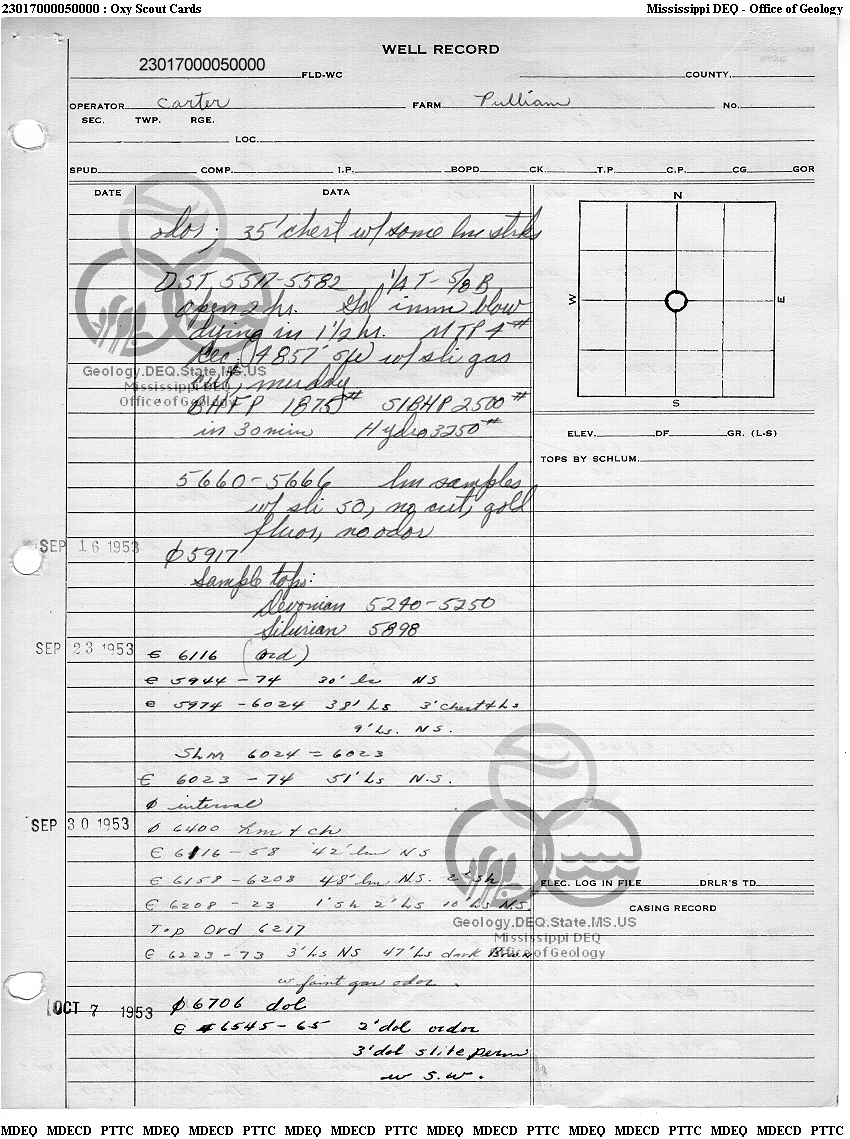 23017000050000 : Oxy Scout Cards Mississippi DEQ - Office of Geology
WELL RECORD
23017000050000 FLD-WC COUNTY
OPERATOR Carter FARM Pulliam No.
SEC. TWP. RGE.
LOC.
SPUD COMP. I.P. BOPD CK. T.P. C.P. CG GOR
DATE DATA
N
W E
S
odor; 35' chert w/ some lm strks
DST 5517-5582 1/4 T - 5/8 B
open 2 hrs. Gd imm blow
dying in 1 1/2 hr. MTP 4#
Rec. (4857' SW w/ sli gas
cut, muddy
BHFP 1875# SIBHP 2500#
in 30 min Hydro 3250#
Geology.DEQ.State.MS.US
Mississippi DEQ
Office of Geology
ELEV. DF. GR. (L-S)
TOPS BY SCHLUM.
5660-5666 lm samples
w/ sli SO, no cut, gold
fluor, no odor
SEP 16 1953
Ø 5917
Sample tops:
Devonian 5240-5250
Silurian 5898
SEP 23 1953 € 6116 (Ord)
€ 5944-74 30' ls NS
€ 5974-6024 38' Ls 3' chert & Ls
9' Ls. NS.
SLM 6024 = 6023
€ 6023-74 51' Ls N.S.
Ø interval
SEP 30 1953 Ø 6400 Lm & ch
€ 6116-58 42' lm NS
€ 6158-6208 48' lm N.S. 2' sh
€ 6208-23 1' sh 2' Ls 10' Ls N.S.
Top Ord 6217
€ 6223-73 3' Ls NS 47' Ls dark Brwn
w faint gas odor.
ELEC. LOG IN FILE DRLR'S TD
CASING RECORD
Geology.DEQ.State.MS.US
Mississippi DEQ
Office of Geology
OCT 7 1953 Ø 6706 dol
€ 6545-65 2' dol ordor
3' dol slite perm
w S.W.
MDEQ MDECD PTTC MDEQ MDECD PTTC MDEQ MDECD PTTC MDEQ MDECD PTTC MDEQ MDECD PTTC MDEQ MDECD PTTC